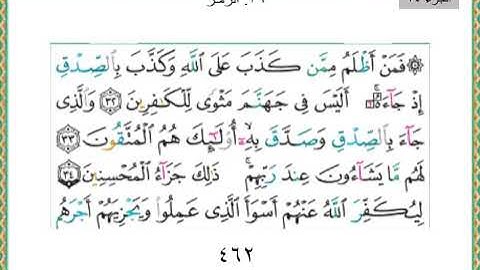 ۞ فَمَنْ أَظْلَمُ مِمَّن كَذَبَ عَلَى اللَّهِ وَكَذَّبَ بِالصِّدْقِ
إِذْ جَآءَهُۥٓ ۚ أَلَيْسَ فِى جَهَنَّمَ مَثْوًى لِّلْكَٰفِرِينَ ٣٢ وَالَّذِى
جَآءَ بِالصِّدْقِ وَصَدَّقَ بِهِۦٓ ۙ أُو۟لَٰٓئِكَ هُمُ الْمُتَّقُونَ ٣٣
لَهُم مَّا يَشَآءُونَ عِندَ رَبِّهِمْ ۚ ذَٰلِكَ جَزَآءُ الْمُحْسِنِينَ ٣٤
لِيُكَفِّرَ اللَّهُ عَنْهُمْ أَسْوَأَ الَّذِى عَمِلُوا۟ وَيَجْزِيَهُمْ أَجْرَهُم
٤٦٢